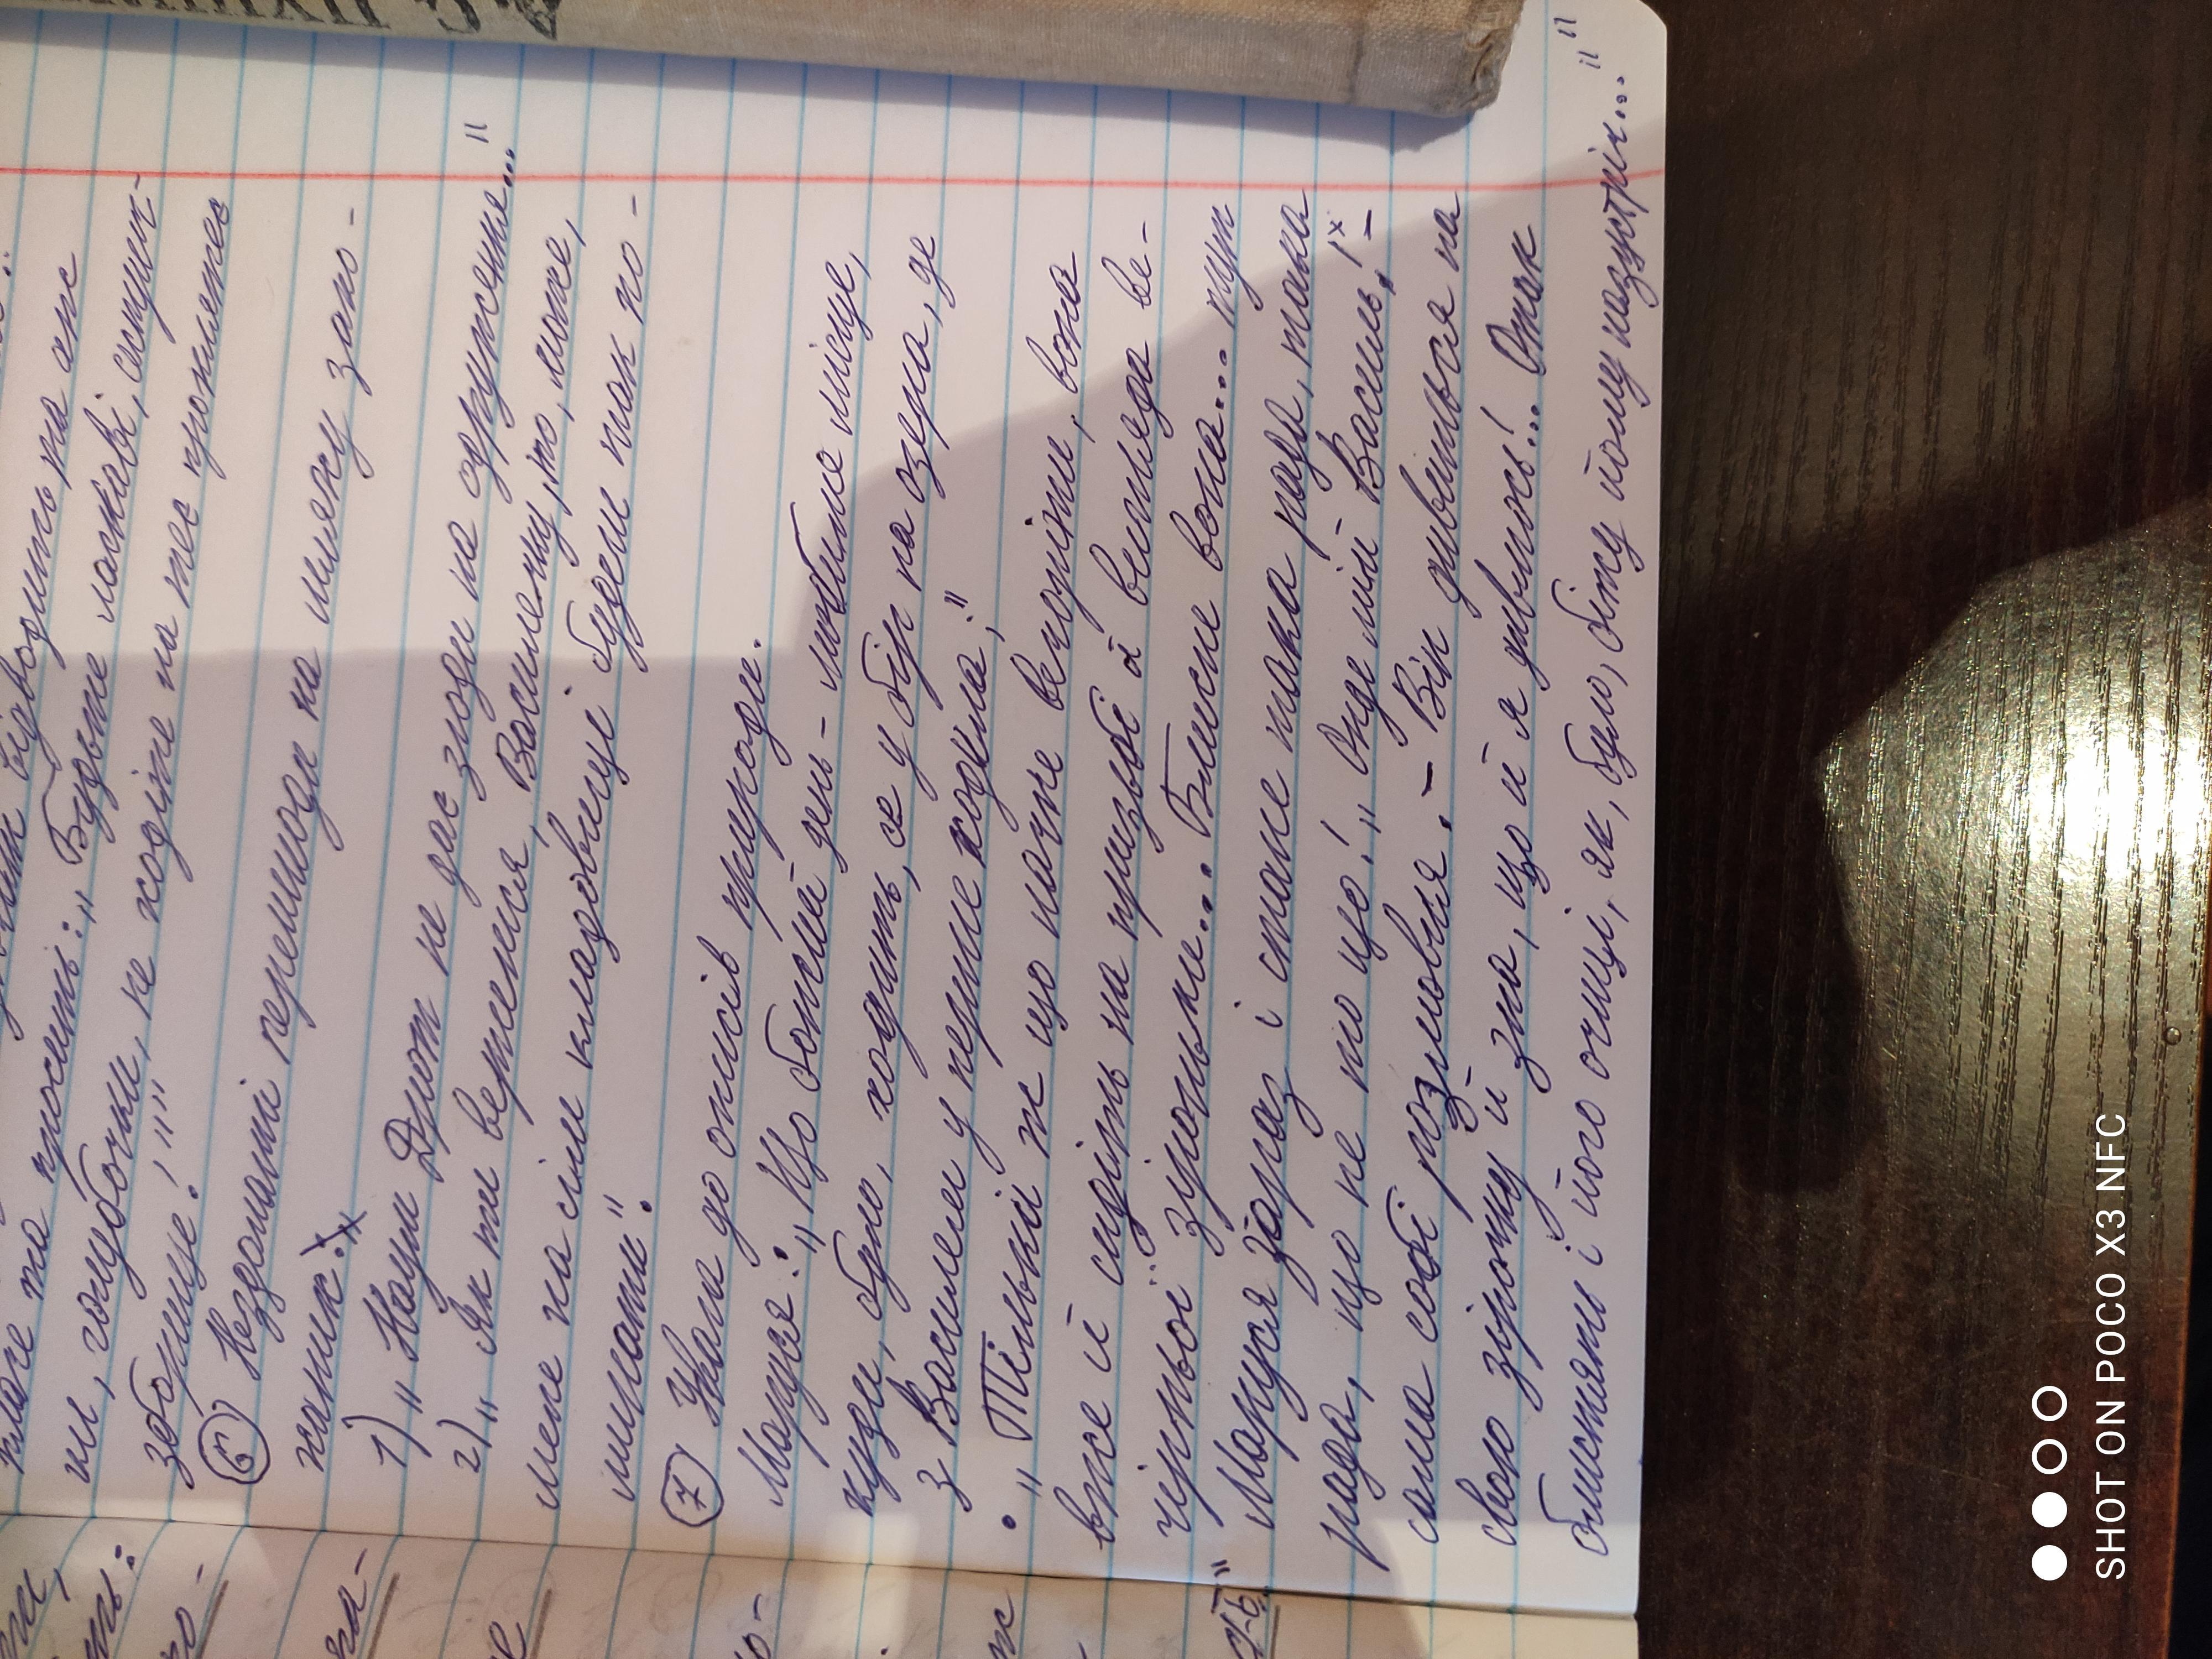 відводить на онс
плаче та просить: „Будьте ласкаві, сступіт-
ми, голубочки, не ходіте на те проклятеє
зборище!"""
⑥ Нездоланні перешкоди на шляху зако-
ханих:
1) „Наум Дрот не дає згоди на одруження..."
2) „Як ти вернешся, Василечку, то, може,
мене на сім кладовищі будеш так по-
минати".
⑦ Увага до описів природи.
Маруся: „Що божий день - любиме місце,
куди, було, ходить, се у бір на озера, де
з Василем у перше ходила;"
• „Тільки ж що начне вечоріти, вона
вже й сидить на призьбі й виглядa ве-
чірньої зірочки... Блисне вона... тут
Маруся зараз і стане така рада, така
рада, що не то що! „Онде мій Василь! -
сама собі розмовля. - Він дивиться на
свою зірочку й зна, що й я дивлюсь!.. Отак
блистять і його очиці, як, було, біжу йому назустріч...""
SHOT ON POCO X3 NFC